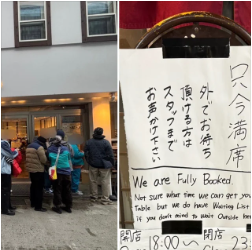 只今満席
外でお待ち
頂ける方は
スタッフまで
お声かけ下さい
We are Fully Booked.
Not sure what time we can get you
Table but we do have Waiting List
if you don't mind to wait Outside
開店
18:00〜
閉店